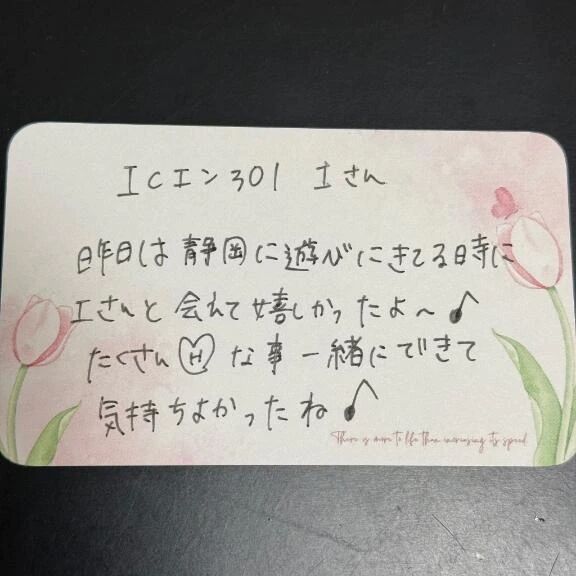 ICイン301 Iさん
昨日は静岡に遊びにきてる時に
Iさんと会えて嬉しかったよ〜♪
たくさんHな事一緒にできて
気持ちよかったね♪
There is more to life than increasing its speed